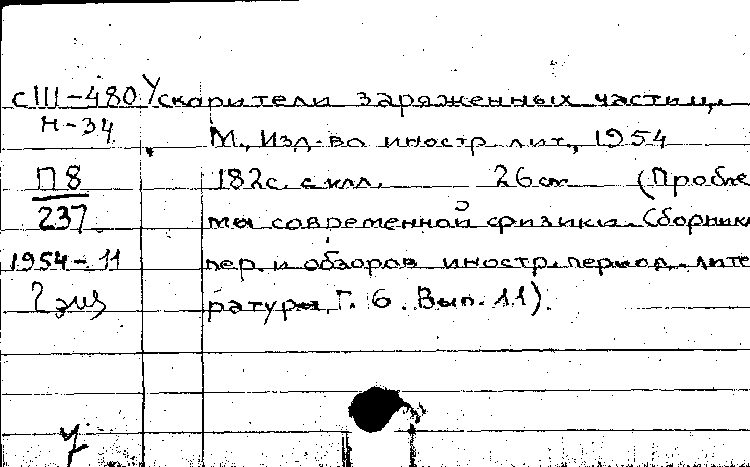 сIII-480 Ускорители заряженных частиц.
Н-34 М., Изд-во иностр. лит., 1954
П8 182с. с илл. 26см (Пробле
237 мы современной физики. Сборник
1954-11 пер. и обзоров иностр. период. лите
2 экз ратуры, Г. 6. Вып. 11).